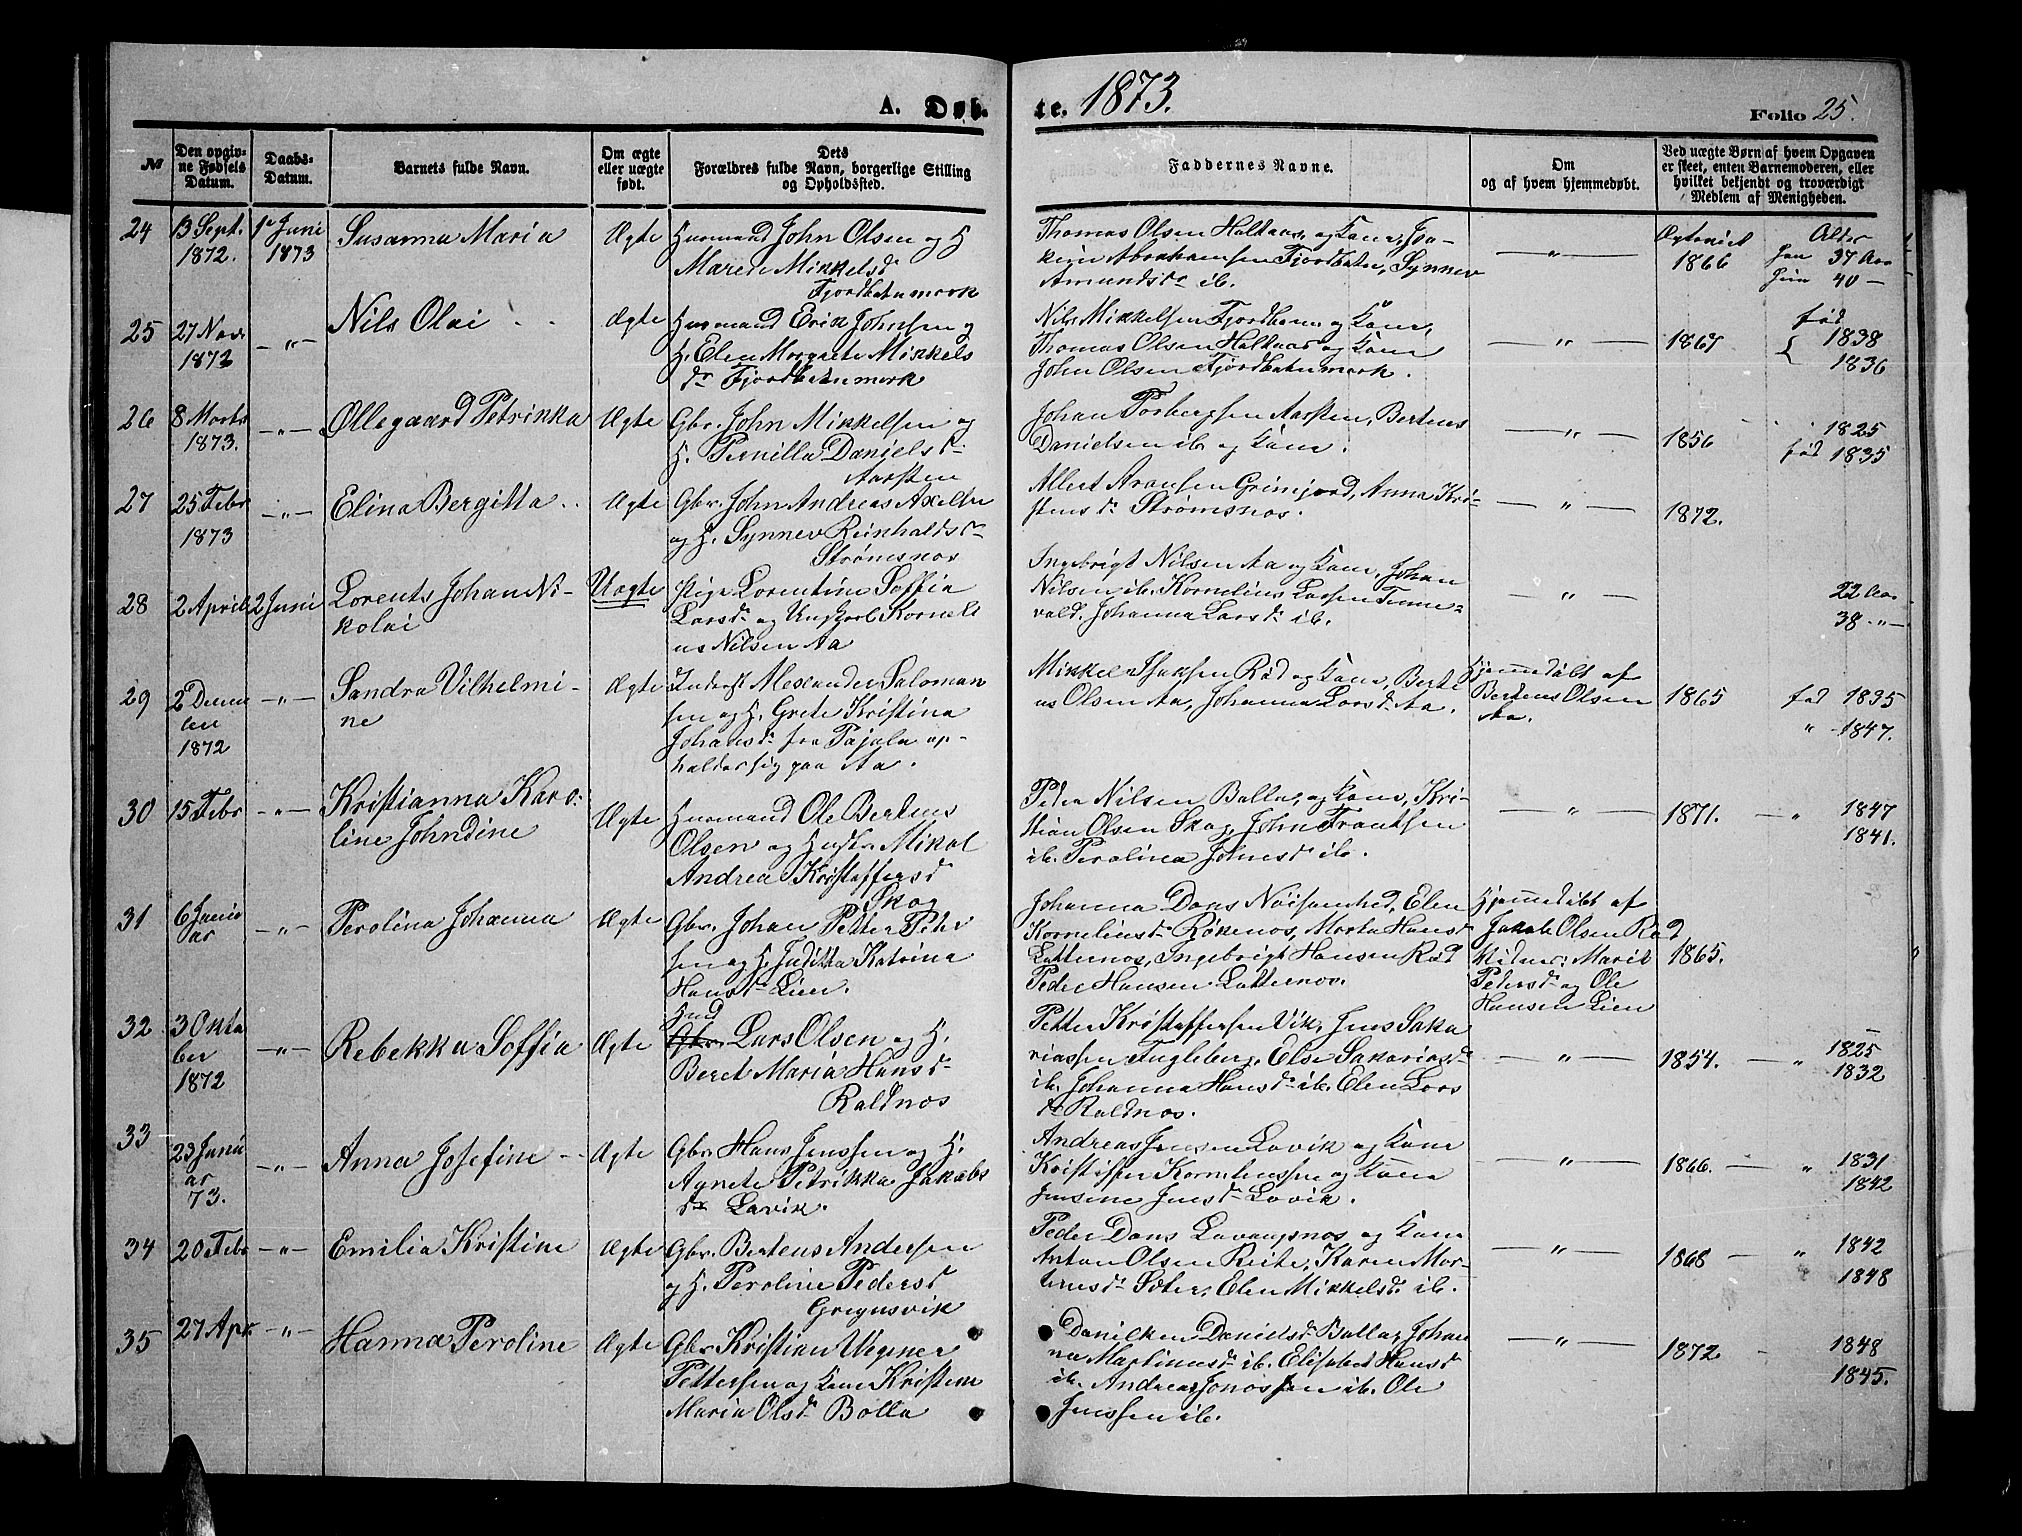 A. Døb-
te. 1873.
Folio 25.
№
Den opgiv-
ne Fødsels
Datum.
Daabs-
Datum.
Barnets fulde Navn.
Om ægte
eller uægte
født.
Dets
Forældres fulde Navn, borgerlige Stilling
og Opholdssted.
Faddernes Navne.
Om
og af hvem hjemmedøbt.
Ved uægte Børn af hvem Opgaven
er skeet, enten Barnemoderen, eller
hvilket bekjendt og troværdigt
Medlem af Menigheden.
24
13 Sept.
1872.
1e Juni
1873
Susanna Maria
Ægte
Husmand John Olsen og H
Maren Mikkelsd
Fjordbotnmark
Thomas Olsen Haltaas, og Kone, Joa-
kim Abrahamsen Fjordbotn, Synnev
Amundsdr ib.
— " —
Ægteviet
1866
Alder
Han 37 Aar
Hun 40 —
25
27 Nov.
1872
— " —
Nils Olai
Ægte
Husmand Erik Johnsen og
H. Elen Margrete Mikkels
dr Fjordbotnmark
Nils Mikkelsen Fjordbotn og Kone,
Thomas Olsen Haltaas og Kone
John Olsen Fjordbotnmark.
— " —
1867
fød
1838
1836
26
8 Marts
1873.
— " —
Øllegaard Petrikka
Ægte
Gbr. John Mikkelsen og
H. Pernilla Danielsd
Aarsten
Johan Torbergsen Aarsten, Berteus
Danielsen ib og Kone.
— " —
1856
1825
fød 1835
27
25 Febr
1873
— " —
Elina Bergitta
Ægte
Gbr. John Andreas Axelsen
og H. Synnev Reinholdsd
Strømsnos
Albert Aronsen Grimsjord, Anna Kri-
stensd Strømsnos.
— " —
1872.
28
2 April
2 Juni
Lorents Johan Ni-
kolai
Uægte
Pige Lorentine Soffia
Larsdr og Ungkarl Korneli
us Nilsen Aa
Ingebrigt Nilsen Aa og Kone, Johan
Nilsen ib. Kornelius Larsen Tenne-
vold. Johanna Larsdr ib.
— " —
22 Aar
38 " —
29
2 Decem
ber
1872
— " —
Sandra Vilhelmi-
ne
Ægte
Inderst Alexander Saloman
sen og H. Grete Kristina
Johansdr fra Pajala op-
holder sig paa Aa.
Mikkel Isaksen Rød og Kone, Berte
us Olsen Aa, Johanna Larsdr Aa.
Hjemmedøbt af
Berteus Olsen
Aa.
1865
fød 1835
" 1847.
30
15 Febr
— " —
Kristianna Karo-
line Johndine
Ægte
Husmand Ole Berteus
Olsen og Hustr. Mikal
Andrea Kristoffersd
Skog
Peder Nilsen Balla, og Kone, Kri-
stian Olsen Skog, John Frantsen
ib. Perolina Johnsd ib.
— " —
1871.
— " 1847
1841.
31
6 Janu
ar
— " —
Perolina Johanna
Ægte
Gbr. Johan Petter Peter
sen og H. Juditta Katrina
Hansdr Lien.
Johanna Dons Nøisomhed, Elen
Korneliusd Røkenos, Marta Hansd
Latternos, Ingebrigt Hansen Rød
Peder Hansen Latternos.
Hjemmedøbt af
Jakob Olsen Rød
Vidner: Marit
Pedersdr og Ole
Hansen Lien
1865.
32
3 Okto
ber
1872
— " —
Rebekka Soffia
Ægte
Hmd
Gbr. Lars Olsen og H.
Beret Maria Hansd
Raldnos
Petter Kristoffersen Vik, Jens Saka
riassen Fugleberg, Else Sakariasd
ib. Johanna Hansdr ib. Elen Lars
dr Raldnos.
— " —
1854.
— " 1825
1832
33
23 Janu
ar
73.
— " —
Anna Josefine
Ægte
Gbr Hans Jenssen og H.
Agnete Petrikka Jakobs
dr Lavik.
Andreas Jensen Lavik og Kone
Kristoffer Korneliussen og Kone
Jensine Jensdr Lavik.
— " —
1866.
— " 1831
1842
34
20 Febr
— " —
Emilia Kristine
Ægte
Gbr. Berteus Andersen
og H. Peroline Pedersd
Gregusvik
Peder Dons Lavangsnos og Kone
Anton Olsen Reite, Karen Mor-
tensdr Sæter, Elen Mikkelsdr ib.
— " —
1868
— " 1842
1848
35
27 Apr.
— " —
Hanna Peroline
Ægte
Gbr. Kristian Wegner
Pettersen og Kone Kristine
Maria Olsdr Bolla
Daniken Danielsdr Balla, Johan
na Martinusdr ib. Elisabet Hansd
ib. Andreas Jonassen ib. Ole
Jenssen ib.
— " —
1872
1848
1845.